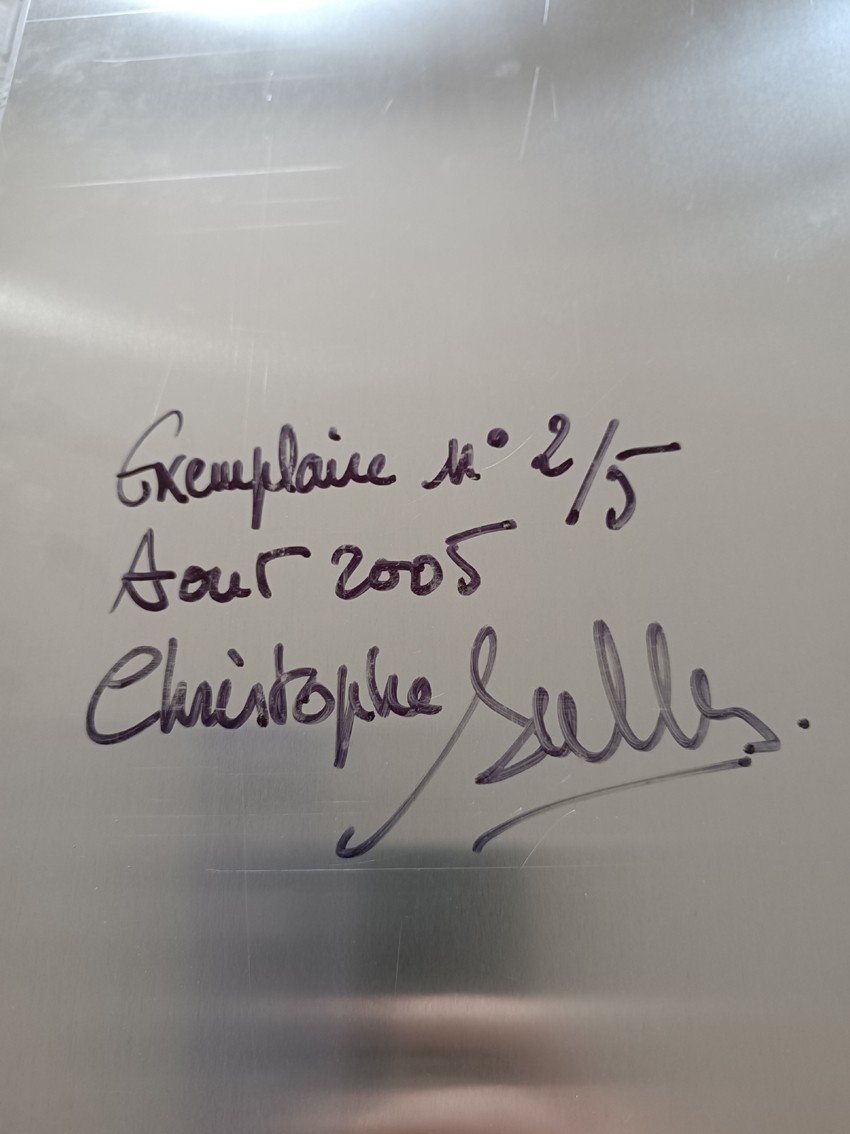 Exemplaire n° 2/5
Aout 2005
Christophe